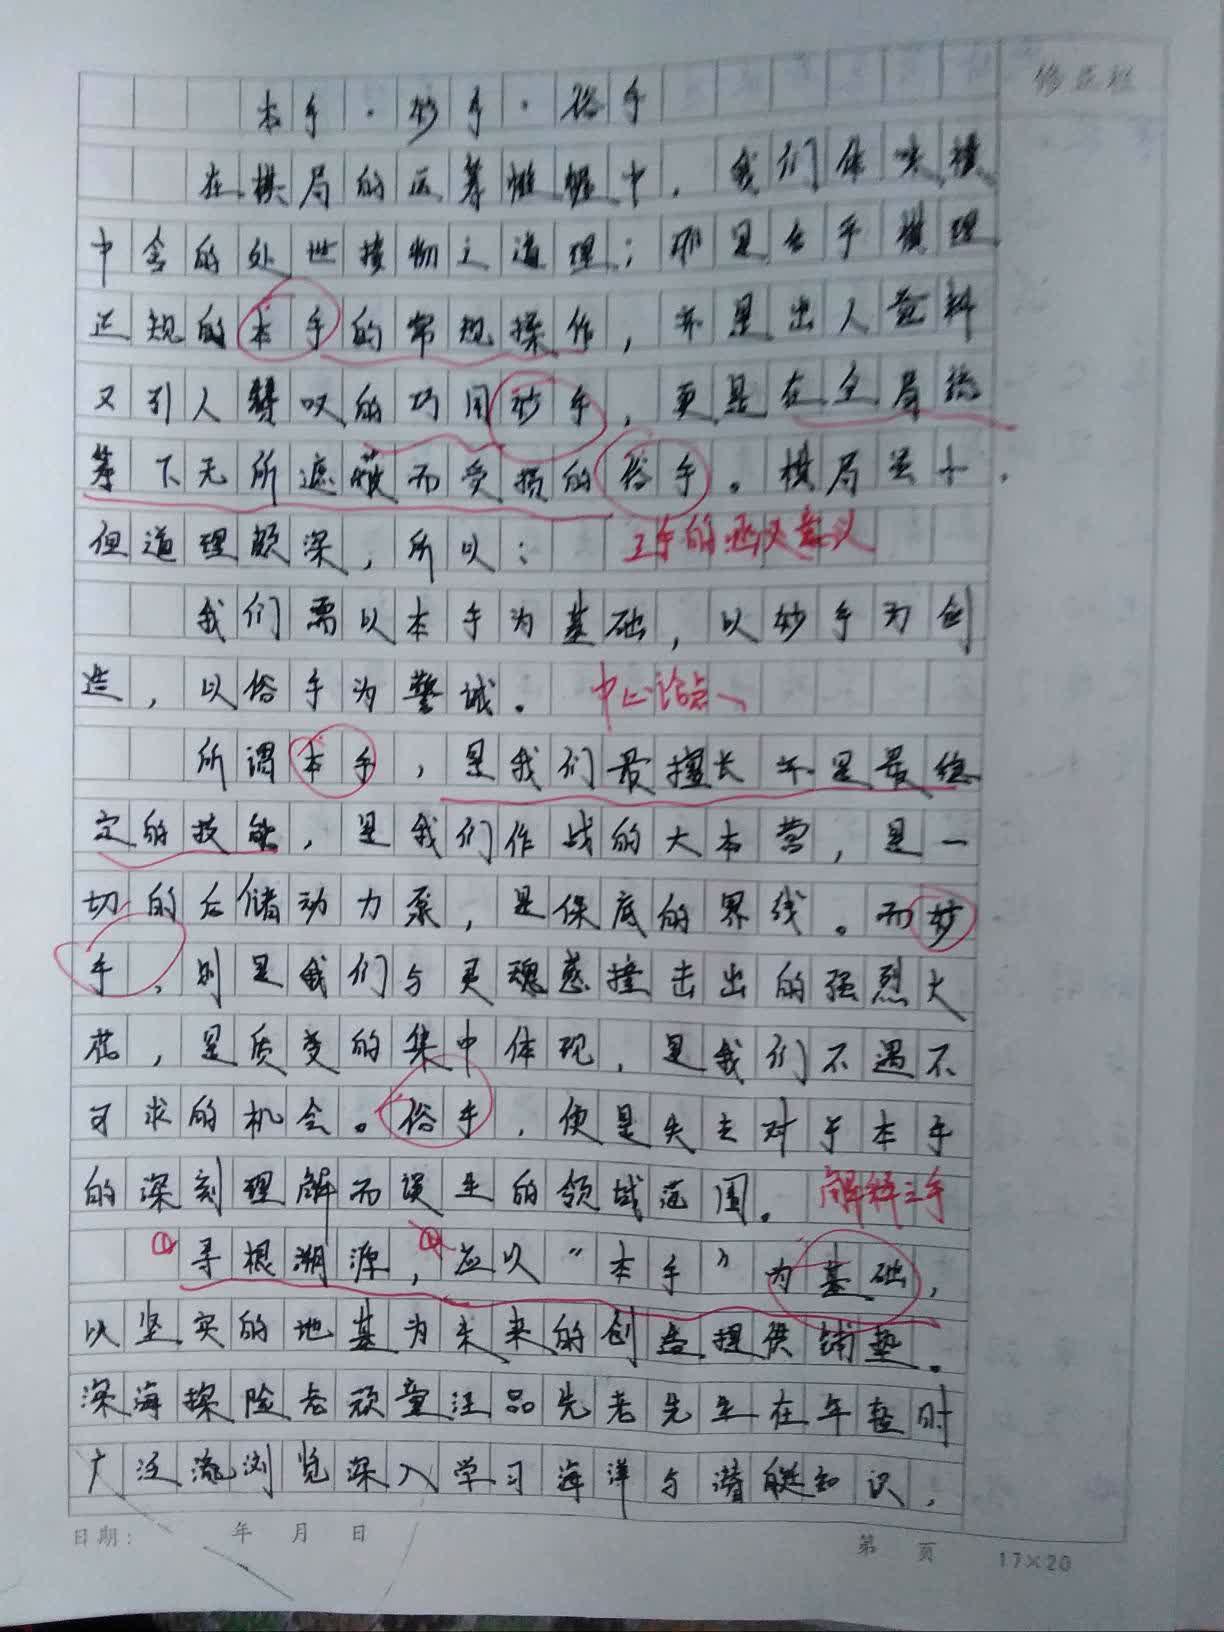 本手·妙手·俗手
修正栏
在棋局的运筹帷幄中，我们体味棋
中含的处世接物之道理；那是合乎棋理
正规的本手的常规操作，亦是出人意料
又引人赞叹的巧用妙手，更是在全局统
筹下无所遮蔽而受损的俗手。棋局虽小，
但道理颇深，所以： 三手的涵义意义
我们需以本手为基础，以妙手为创
造，以俗手为警诫。 中心论点
所谓本手，是我们最擅长亦是最稳
定的技能，是我们作战的大本营，是一
切的后储动力泵，是保底的界线。而妙
手，则是我们与灵魂惑撞击出的强烈火
花，是质变的集中体现，是我们不遇不
可求的机会。俗手，便是失去对于本手
的深刻理解而误生的领域范围。 解释三手
① 寻根溯源，应以“本手”为基础，
以坚实的地基为未来的创造提供铺垫。
深海探险老顽童汪品先老先生在年轻时
广泛浏览深入学习海洋与潜艇知识，
日期： 年 月 日 第 页 17×20